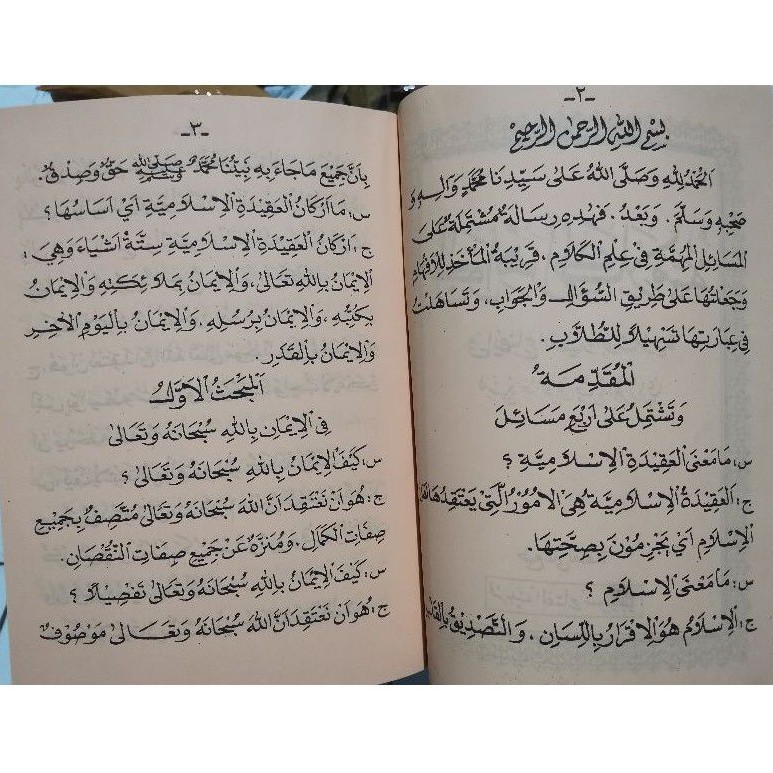 -٢-
بِسْمِ اللهِ الرَّحْمٰنِ الرَّحِيْمِ
اَلْحَمْدُ لِلّٰهِ وَصَلَّى اللهُ عَلٰى سَيِّدِنَا مُحَمَّدٍ وَاٰلِهٖ وَ
صَحْبِهٖ وَسَلَّمَ . وَبَعْدُ . فَهٰذِهٖ رِسَالَةٌ مُشْتَمِلَةٌ عَلَى
الْمَسَائِلِ الْمُهِمَّةِ فِيْ عِلْمِ الْكَلَامِ ، قَرِيْبَةُ الْمَأْخَذِ لِلْاَفْهَامِ
وَجَعَلْتُهَا عَلٰى طَرِيْقِ السُّؤَالِ وَالْجَوَابِ، وَتَسَاهَلْتُ
فِيْ عِبَارَتِهَا تَسْهِيْلًا لِلطُّلَّابِ.
اَلْمُقَدِّمَةُ
وَتَشْتَمِلُ عَلٰى اَرْبَعِ مَسَائِلَ
س: مَا مَعْنَى الْعَقِيْدَةِ الْاِسْلَامِيَّةِ ؟
ج: اَلْعَقِيْدَةُ الْاِسْلَامِيَّةُ هِيَ الْاُمُوْرُ الَّتِيْ يَعْتَقِدُهَا
الْاِسْلَامِ اَيْ يَجْزِمُوْنَ بِصِحَّتِهَا.
س: مَا مَعْنَى الْاِسْلَامِ ؟
ج: اَلْاِسْلَامُ هُوَ الْاِقْرَارُ بِاللِّسَانِ ، وَالتَّصْدِيْقُ
-٣-
بِاَنَّ جَمِيْعَ مَا جَاءَ بِهٖ نَبِيُّنَا مُحَمَّدٌ صَلَّى اللهُ عَلَيْهِ وَسَلَّمَ حَقٌّ وَصِدْقٌ.
س: مَا اَرْكَانُ الْعَقِيْدَةِ الْاِسْلَامِيَّةِ اَيْ اَسَاسُهَا ؟
ج: اَرْكَانُ الْعَقِيْدَةِ الْاِسْلَامِيَّةِ سِتَّةُ اَشْيَاءَ وَهِيَ :
اَلْاِيْمَانُ بِاللهِ تَعَالٰى، وَالْاِيْمَانُ بِمَلَائِكَتِهٖ وَالْاِيْمَانُ
بِكُتُبِهٖ ، وَالْاِيْمَانُ بِرُسُلِهٖ. وَالْاِيْمَانُ بِالْيَوْمِ الْاٰخِرِ
وَالْاِيْمَانُ بِالْقَدَرِ.
اَلْمَبْحَثُ الْاَوَّلُ
فِي الْاِيْمَانِ بِاللهِ سُبْحَانَهُ وَتَعَالٰى
س: كَيْفَ الْاِيْمَانُ بِاللهِ سُبْحَانَهُ وَتَعَالٰى ؟
ج: هُوَ اَنْ نَعْتَقِدَ اَنَّ اللهَ سُبْحَانَهُ وَتَعَالٰى مُتَّصِفٌ بِجَمِيْعِ
صِفَاتِ الْكَمَالِ. وَمُنَزَّهٌ عَنْ جَمِيْعِ صِفَاتِ النُّقْصَانِ.
س: كَيْفَ الْاِيْمَانُ بِاللهِ سُبْحَانَهُ وَتَعَالٰى تَفْصِيْلًا ؟
ج: هُوَ اَنْ نَعْتَقِدَ اَنَّ اللهَ سُبْحَانَهُ وَتَعَالٰى مَوْصُوْفٌ